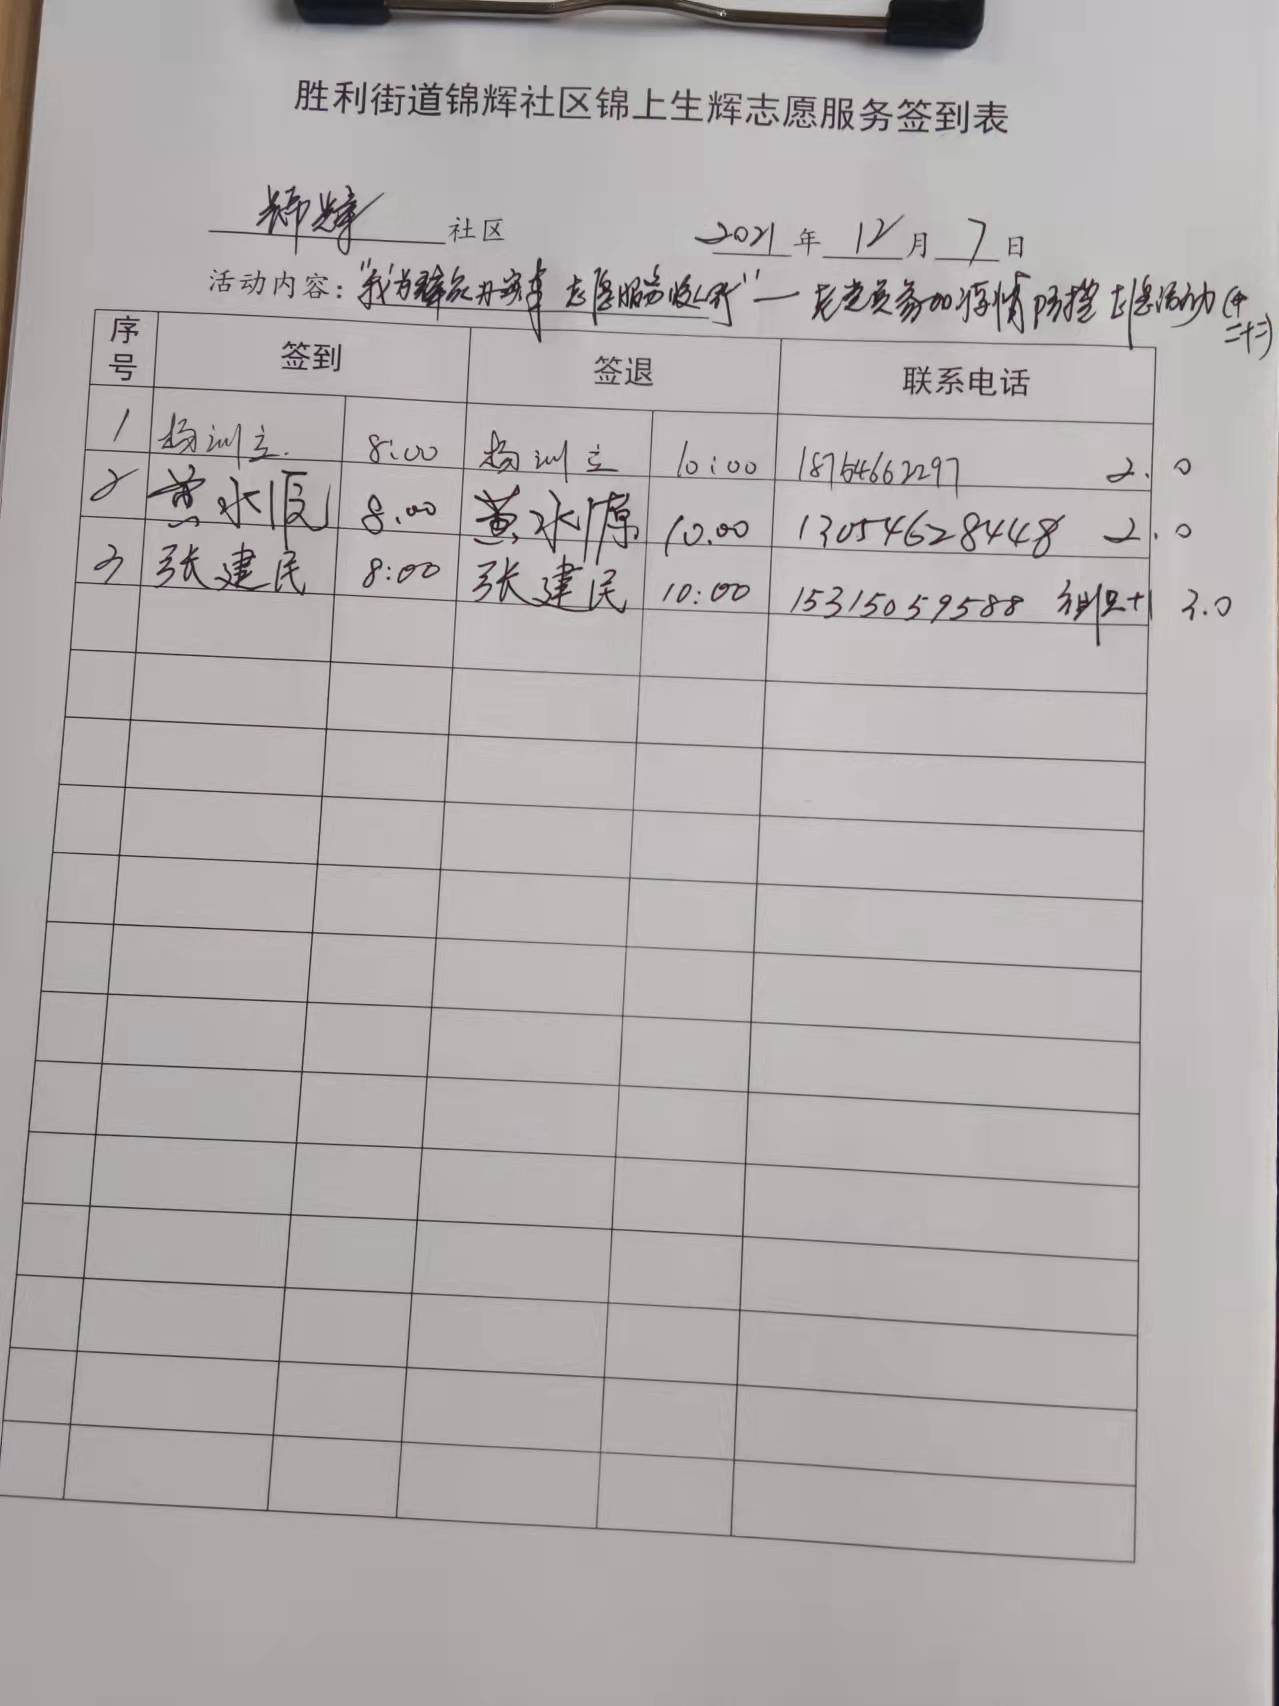 胜利街道锦辉社区锦上生辉志愿服务签到表
锦辉 社区 2021 年 12 月 7 日
活动内容："我为群众办实事 志愿服务"一老党员参加疫情防控志愿活动(
二十二)
序号 签到 签退 联系电话
1 杨训立 8:00 杨训立 10:00 18764662297 2.0
2 黄永源 8.00 黄永源 10.00 13054628448 2.0
3 张建民 8:00 张建民 10:00 15315059588 3.0